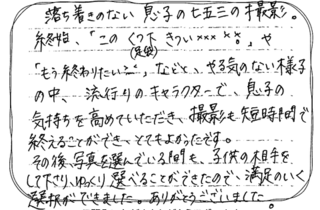 落ち着きのない息子の七五三の撮影。
終始、「このくつ下きつい×××」や
(足袋)
「もう終わりたい〜」などと、やる気のない様子
の中、流行りのキャラクターで、息子の
気持ちを高めていただき、撮影も短時間で
終えることができ、とてもよかったです。
その後、写真を選んでいる間も、子供の相手を
して下さり、ゆっくり選べることができたので、満足のいく
選択ができました。ありがとうございました。